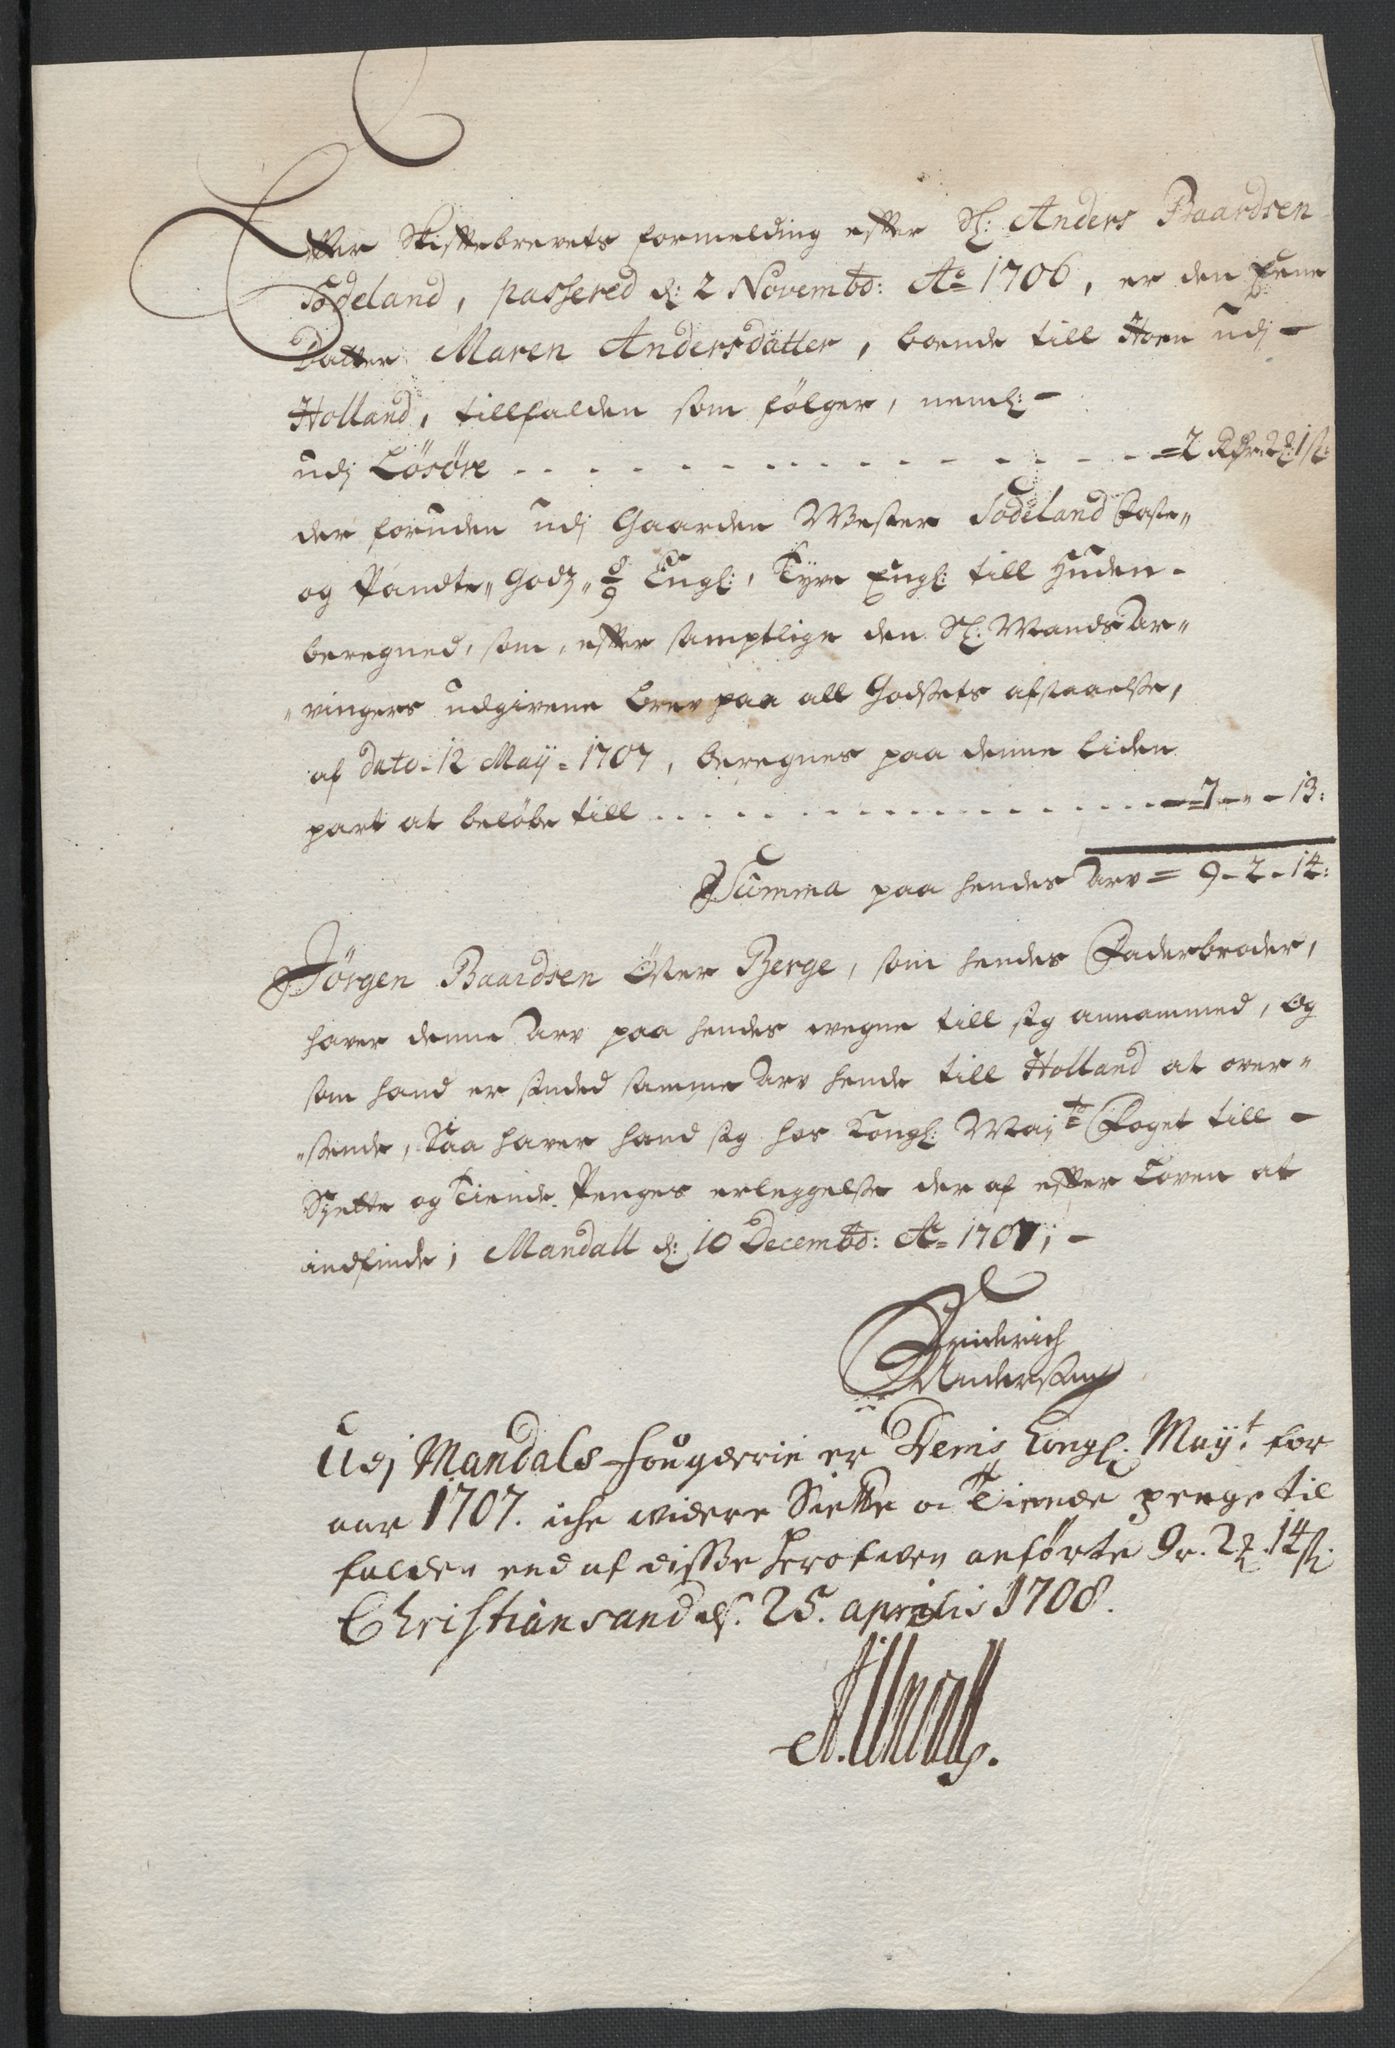 Efter Skiftebrevets formelding efter Sl: Anders Baardsen
Sødeland, passered d: 2 Novembd: Ao 1706, er den Eene
Datter Maren Andersdatter, boende till Hoen udj
Holland, tillfalden som følger, neml:
udj Løsøre - - - - - - - = 2 Rdr 2 1 s:
der foruden udj Gaarden Wester Sødeland Faste„
og Pandte„Godz„ 8/9 Engl:, Tyve Engl: till Huden
beregned, som, efter samptlige den Sl: Mands Ar„
„vingers udgivene brev paa all Godsets afstaaelse,
af dato 12 Maij 1707, beregnes paa denne liden
part at beløbe till - - - - - - = 7 - „ - 13:
Summa paa hendes Arv = 9 - 2 - 14:
Jørgen Baardsen Øster Berge, som hendes Faderbroder,
haver denne Arv paa hendes wegne till sig annammed, Og
som hand er sinded samme Arv hende till Holland at over„
„sende, Saa haver hand sig hos Kongl: Mayts Foget till
Siette og Tiende Penges erleggelse der af efter Loven at
indfinde; Mandall d: 10 Decembd: Ao 1707;
Friderich
Anderssen
Udj Mandals fougderie er Deris Kongl. Mayt. for
aar 1707. iche widere Siette oc Tiende penge til
falden end af disse herofwen anførte 9 r. 2 . 14 s:
Christiansand d. 25. aprilis 1708.